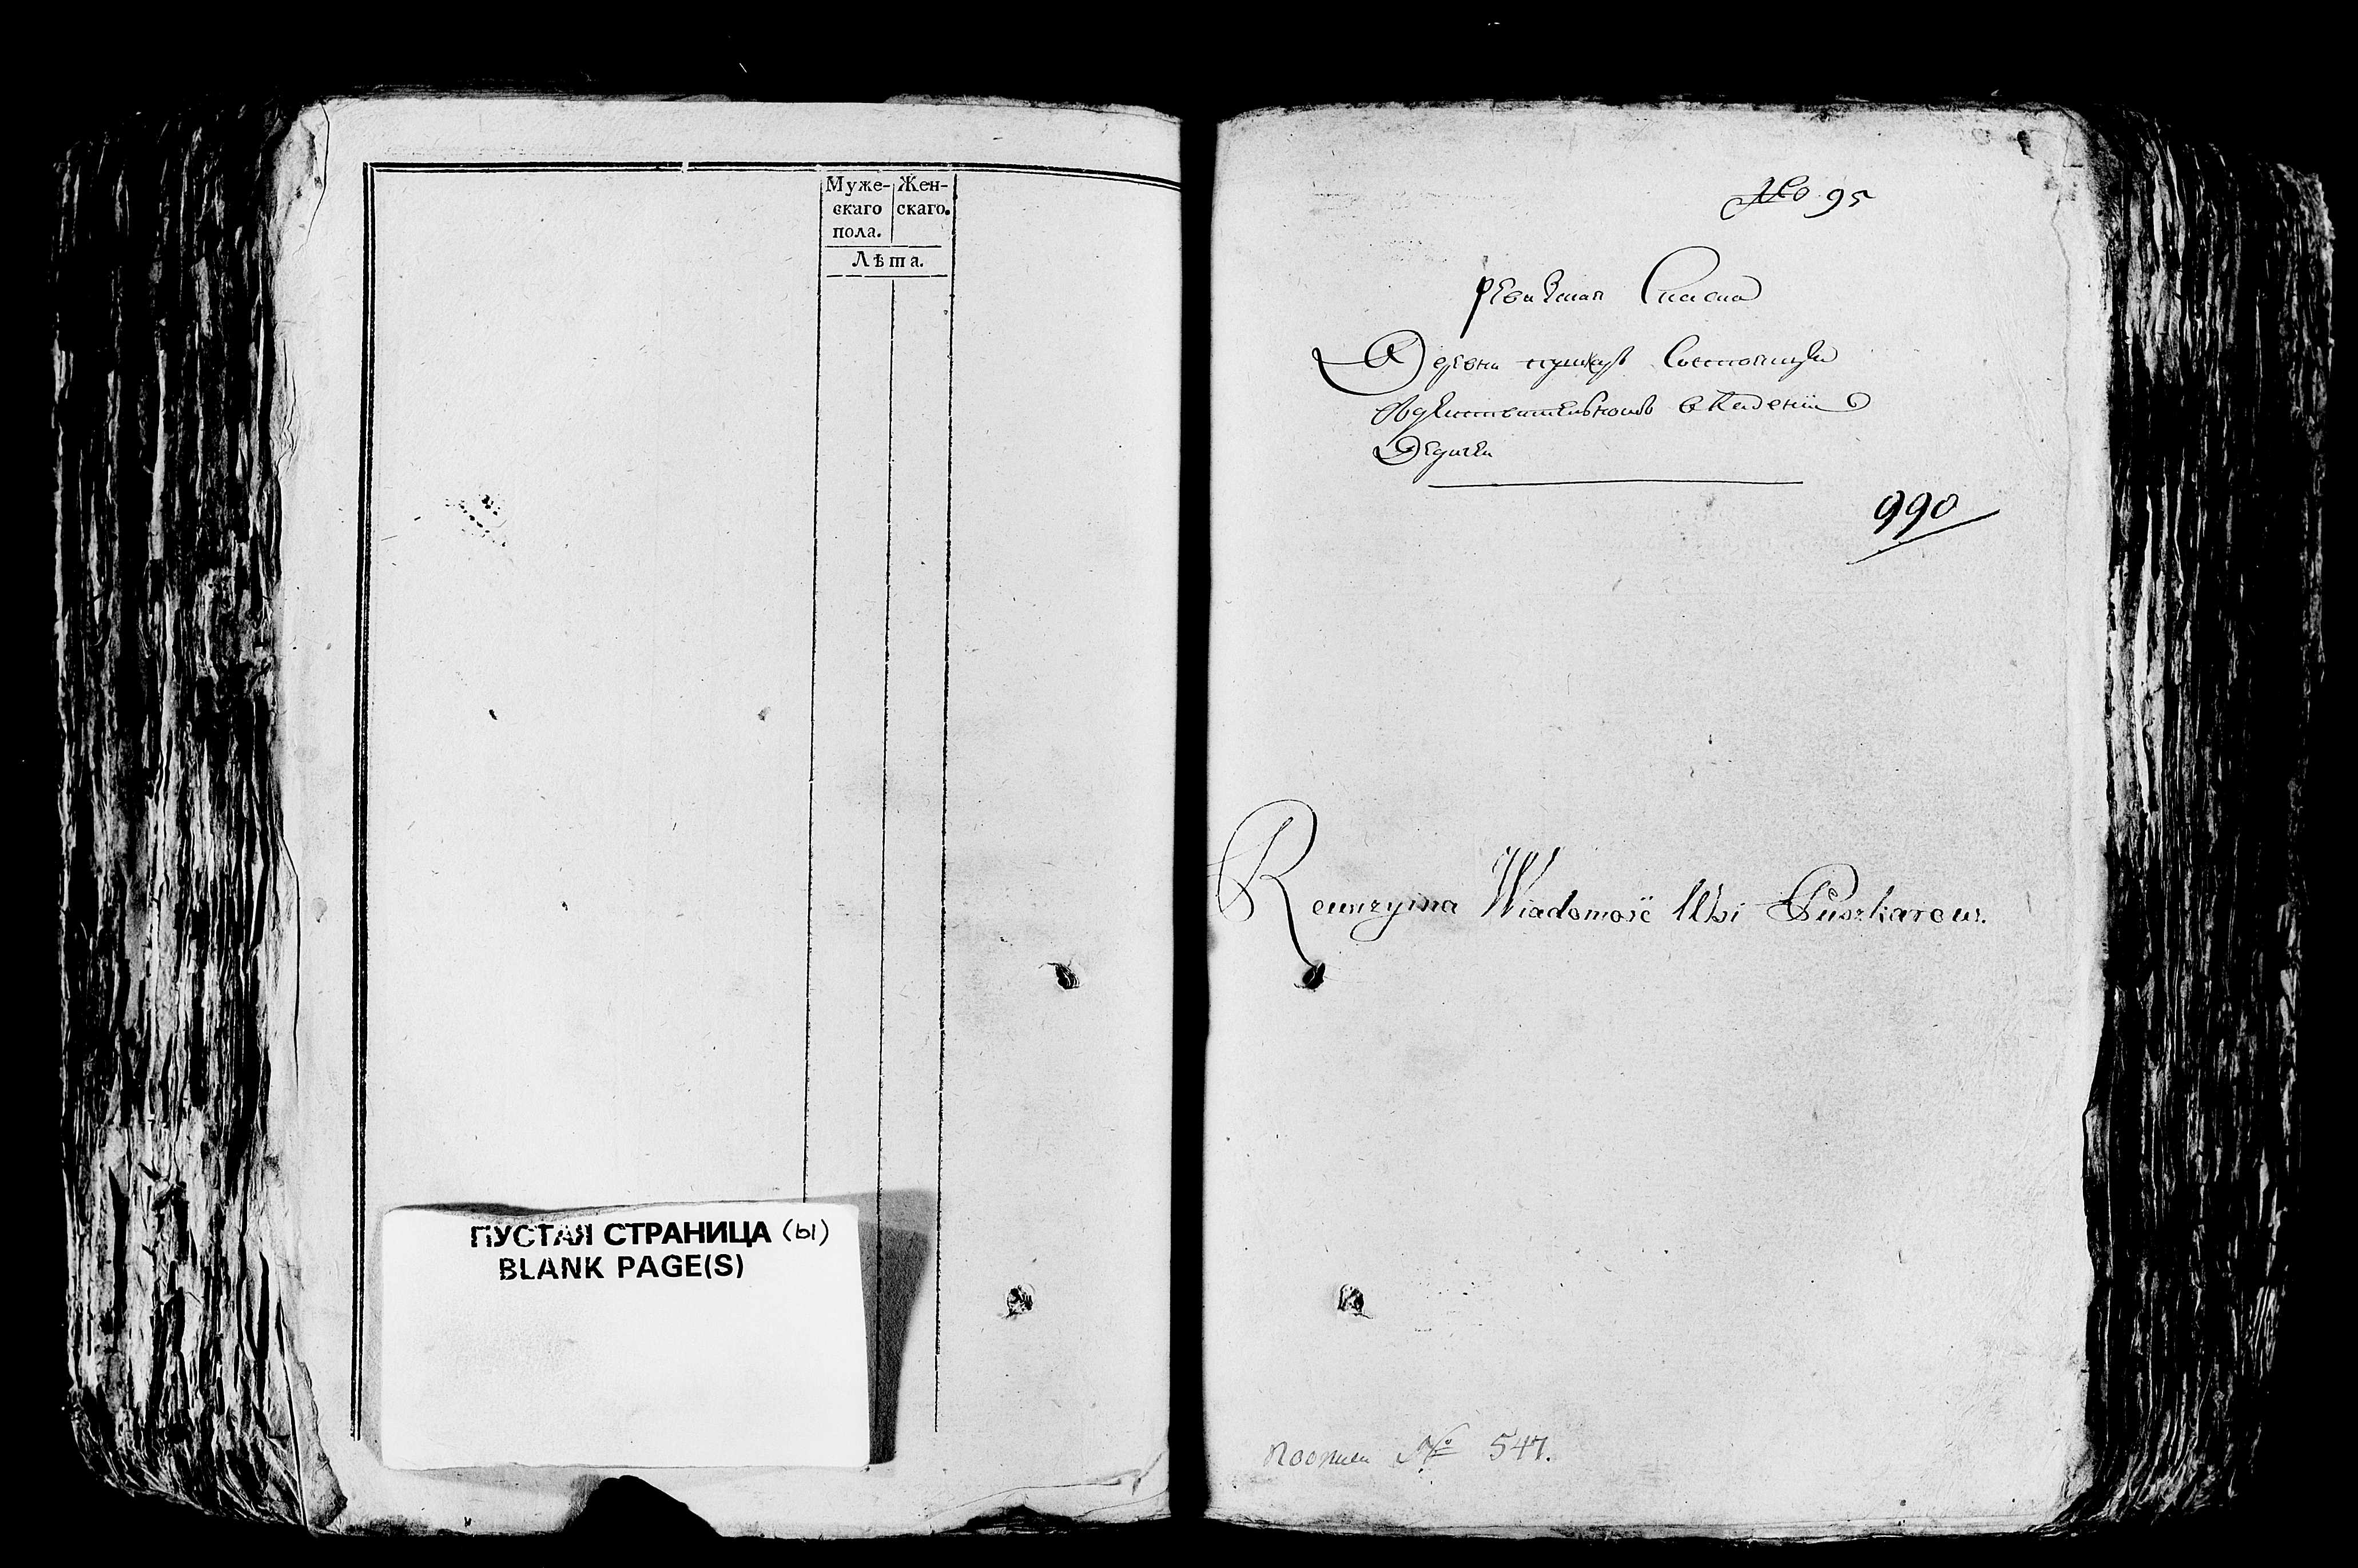 Муже-
скаго
пола.
Жен-
скаго.
Лѣта.
ПУСТАЯ СТРАНИЦА (ы)
BLANK PAGE(S)
No 95
ревизская Сказка
Деревни пушкарь Состоящей
Дедичей
990
Rewizyina Wiadomość Wsi Puszkarow.
по описи № 547.